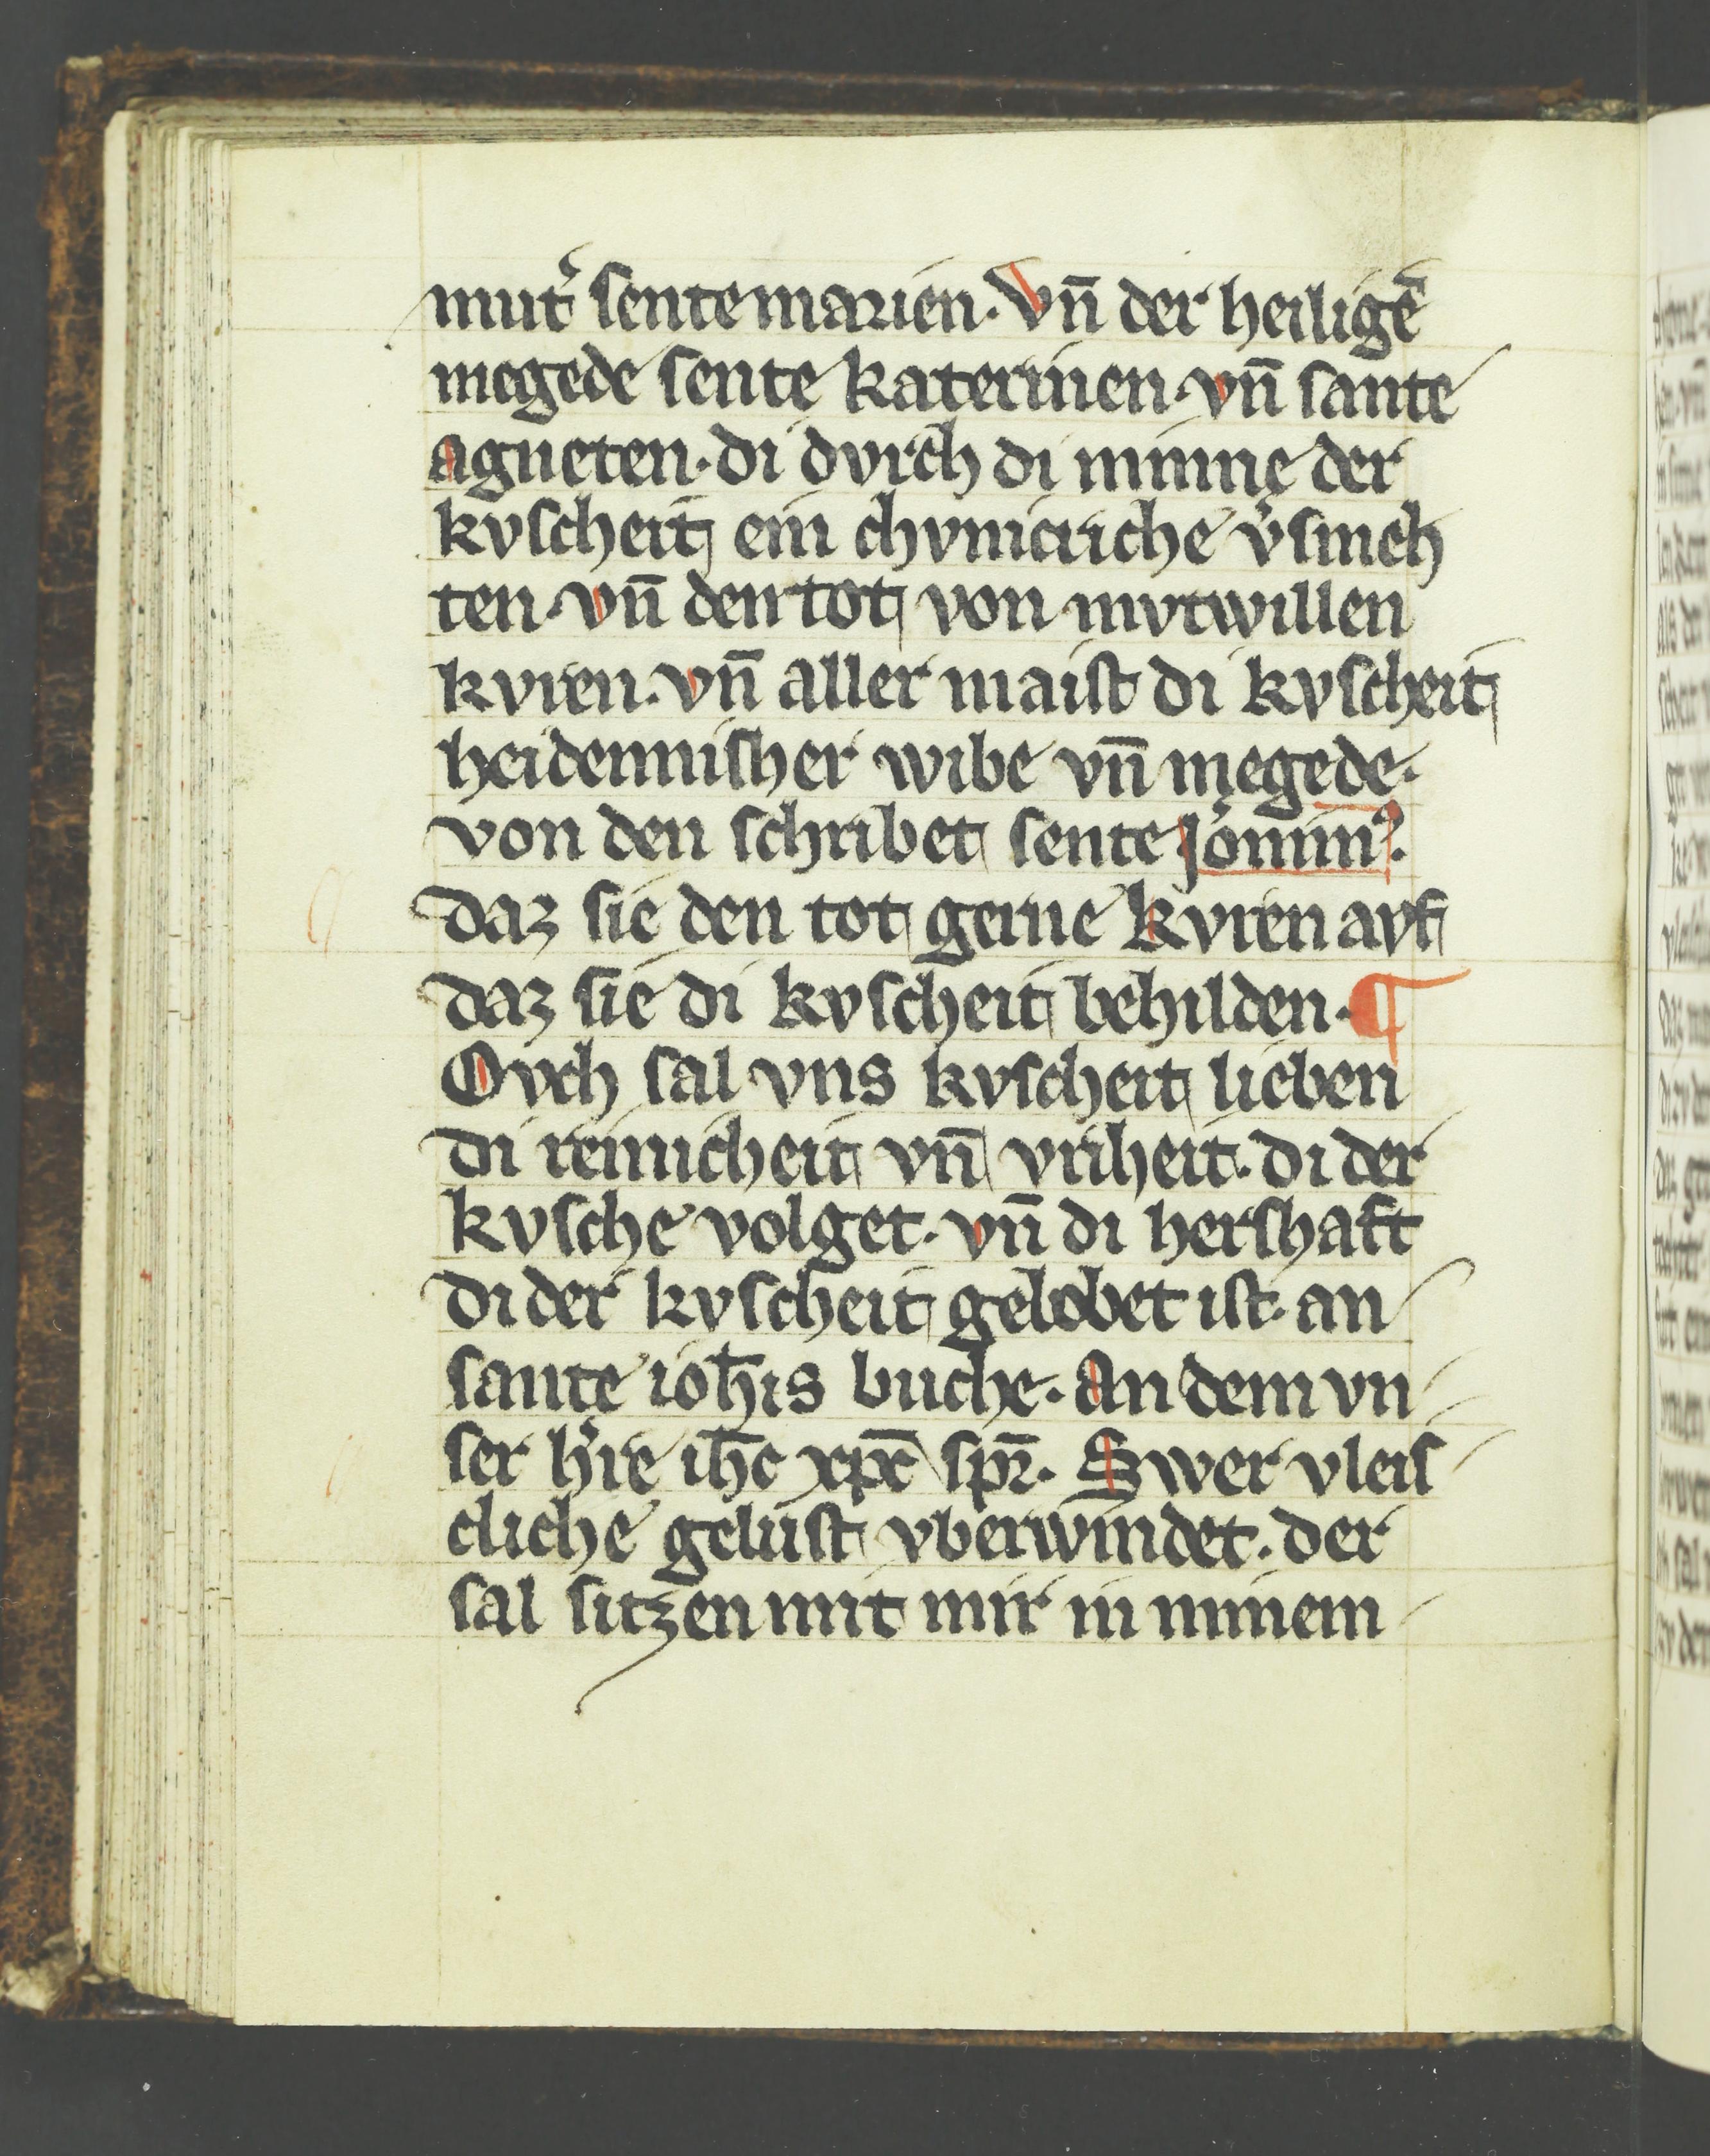 mut͛ sente marien · Vn̄ der heiligē
megede sente katerinen · vn̄ sante
agneten · di dvrch di minne der
kvscheit ein chvnicriche v͛smeh
ten · vn̄ den tot von mvtwillen
kvren · vn̄ aller maist di kvscheit
heidennisher wibe vn̄ megede ·
von den schribet sente
daz sie den tot gerne kvren avf
daz sie di kvscheit behilden · ¶
Ovch sal vns kvscheit lieben
di reinicheit vn̄ vriheit · di der
kvsche volget · vn̄ di hershaft
di der kvscheit gelobet ist · an
sante ioh̄is buche · An dem vn
ser h͛re ih̄c xp̄c spꝛ̄ · Swer vleis
cliche gelust vberwindet · der
sal sitzen mit mir in minem